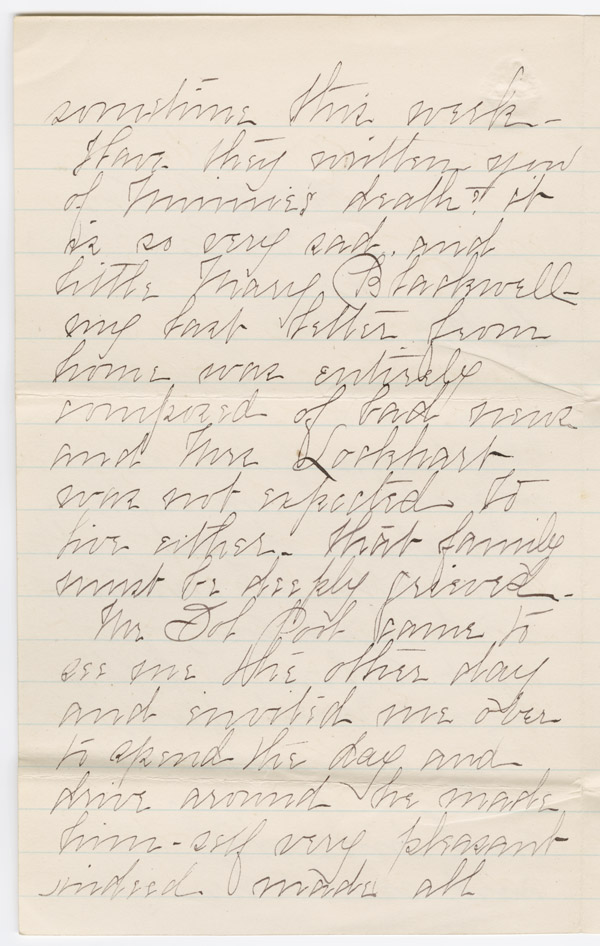 sometime this week-
Have they written you
of Minnie's death? it
is so very sad, and
little Mary Blackwell-
my last letter from
home was entirely
composed of bad news
and Mrs Lockhart
was not expected to
live either- that family
must be deeply grieved-
The Dol came to
see me the other day
and invited me over
to spend the day and
drive around he made
him-self very pleasant
indeed made all